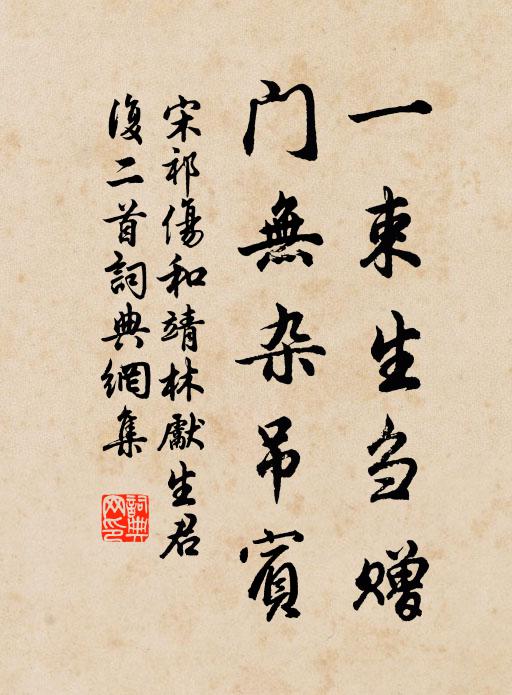 一束生刍赠
门無杂吊賓
宋祁傷和靖林獻生君
復二首詞典網集
詞典网印